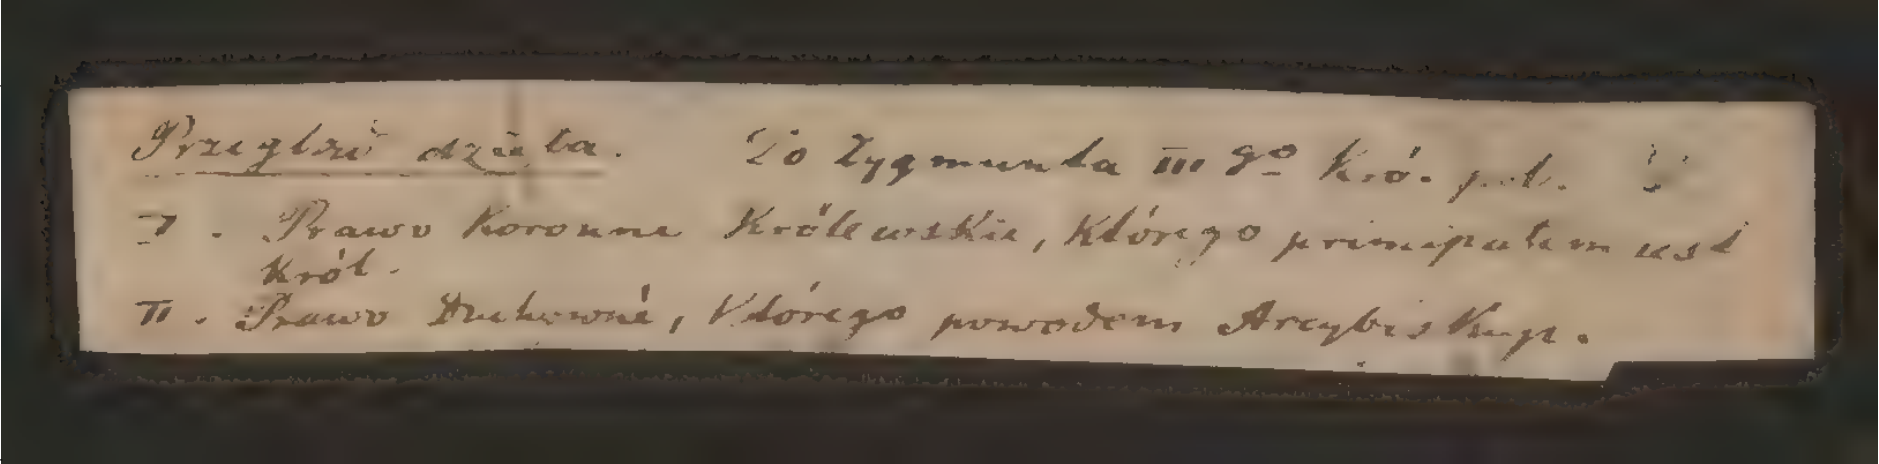 Przegląd dzieła. Do Zygmunta III go Kró. pol.
I. Prawo Koronne Królewskie, którego principatem iest
Król.
II. Prawo Duchowné, którego powodem Arcybiskup.